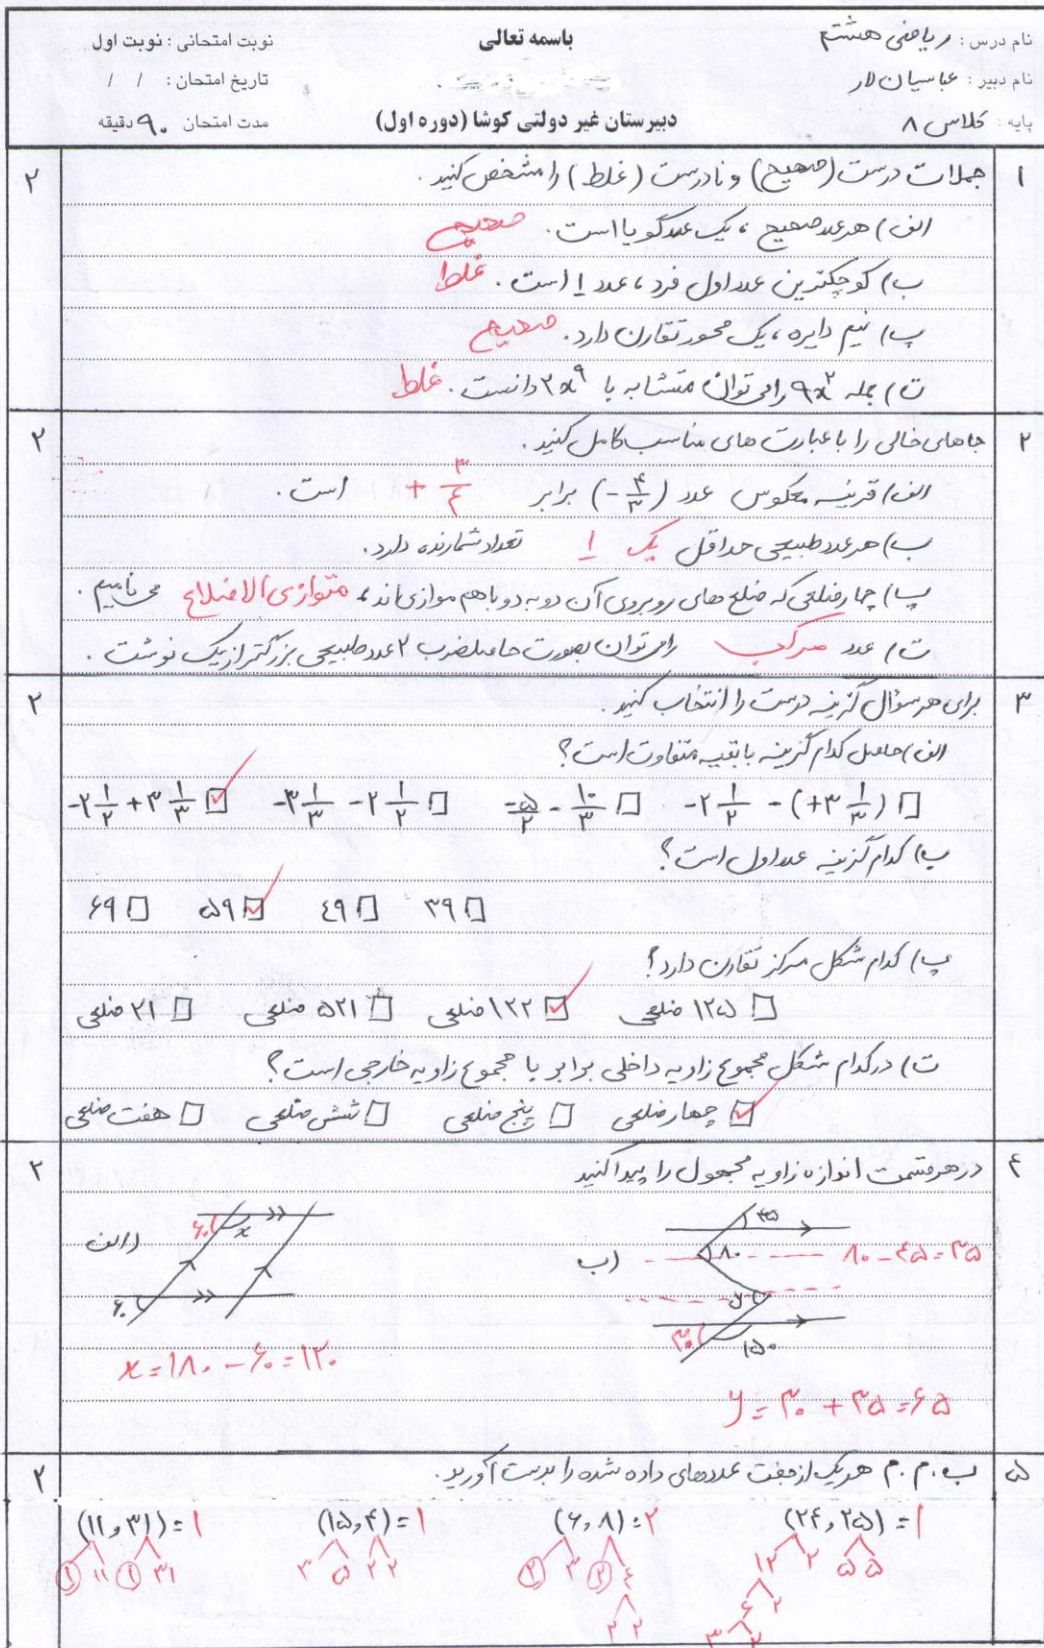 نام درس : ریاضی هشتم
باسمه تعالی
نوبت امتحانی : نوبت اول
نام دبیر : عباسیان لار
تاریخ امتحان : / /
پایه : کلاس ۸
دبیرستان غیر دولتی کوشا (دوره اول)
مدت امتحان ۹۰ دقیقه
۱ جملات درست (صحیح) و نادرست (غلط) را مشخص کنید . ۲
الف) هر عدد صحیح ، یک عدد گویا است . صحیح
ب) کوچکترین عدد اول فرد ، عدد ۱ است . غلط
پ) نیم دایره ، یک محور تقارن دارد . صحیح
ت) جمله ۹x^۲ را می توان متشابه با ۲x^۹ دانست . غلط
۲ جاهای خالی را با عبارت های مناسب کامل کنید . ۲
الف) قرینه معکوس عدد (-۴/۳) برابر +۳/۴ است .
ب) هر عدد طبیعی حداقل یک ۱ تعداد شمارنده دارد .
پ) چهارضلعی که ضلع های روبروی آن دو به دو با هم موازی اند ، متوازی الاضلاع می نامیم .
ت) عدد مرکب را می توان بصورت حاصلضرب ۲ عدد طبیعی بزرگتر از یک نوشت .
۳ برای هر سؤال گزینه درست را انتخاب کنید . ۲
الف) حاصل کدام گزینه با بقیه متفاوت است ؟
□ -۲ ۱/۲ - (+۳ ۱/۳) □ -۵/۲ - ۱۰/۳ □ -۳ ۱/۳ - ۲ ۱/۲ ☑ -۲ ۱/۲ + ۳ ۱/۳
ب) کدام گزینه عدد اول است ؟
□ ۳۹ □ ۴۹ ☑ ۵۹ □ ۶۹
پ) کدام شکل مرکز تقارن دارد ؟
□ ۱۲۵ ضلعی ☑ ۱۲۲ ضلعی □ ۵۲۱ ضلعی □ ۲۱ ضلعی
ت) در کدام شکل مجموع زاویه داخلی برابر با مجموع زاویه خارجی است ؟
☑ چهار ضلعی □ پنج ضلعی □ شش ضلعی □ هفت ضلعی
۴ در هر قسمت اندازه زاویه مجهول را پیدا کنید ۲
الف)
۶۰ x
۶۰
x = ۱۸۰ - ۶۰ = ۱۲۰
ب)
۴۵
۸۰ ۸۰ - ۴۵ = ۳۵
y
۳۰ ۱۵۰
y = ۳۰ + ۳۵ = ۶۵
۵ ب . م . م هر یک از جفت عددهای داده شده را بدست آورید . ۲
(۲۴ , ۲۵) = ۱ (۶ , ۸) = ۲ (۱۵ , ۴) = ۱ (۱۱ , ۳۱) = ۱
۱۲ ۲ ۵ ۵ ۲ ۳ ۲ ۴ ۳ ۵ ۲ ۲ ۱ ۱۱ ۱ ۳۱
۶ ۲ ۲ ۲
۳ ۲